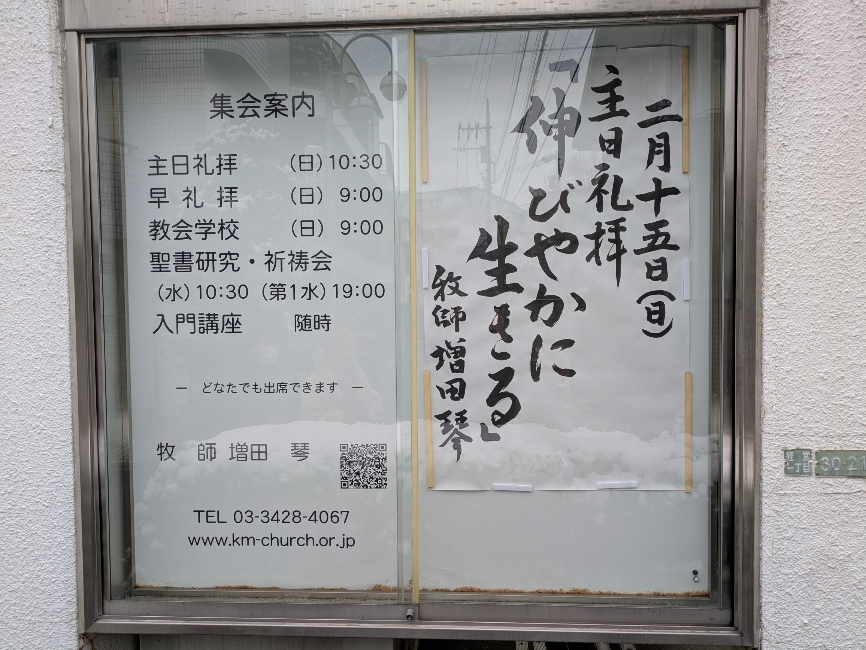 集会案内
主日礼拝 （日）10:30
早礼拝 （日） 9:00
教会学校 （日） 9:00
聖書研究・祈祷会
（水）10:30（第1水）19:00
入門講座 随時
― どなたでも出席できます ―
牧師 増田 琴
TEL 03-3428-4067
www.km-church.or.jp
二月十五日（日）
主日礼拝
「伸びやかに
生きる」
牧師 増田琴
30-21